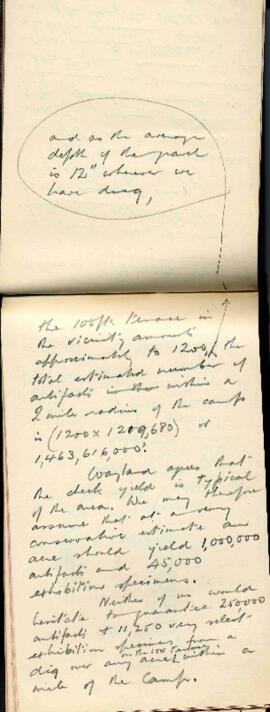 and as the average
depth of the gravel
is 12" wherever we
have dug,
the 100ft. terrace in
the vicinity amounts
approximately to 1200, the
total estimated number of
artifacts within a
2 mile radius of the camp
is (1200 x 1209,680) or
1,463,616,000!
Wayland agrees that
the check yield is typical
of the area. We may therefore
assume that at a very
conservative estimate an
acre should yield 1,000,000
artifacts and 45,000
exhibition specimens.
Neither of us would
hesitate to guarantee 250,000
artifacts + 11,250 very select
exhibition specimens from a
on the 100 ft terrace
dig over any acre within a
mile of the camp.